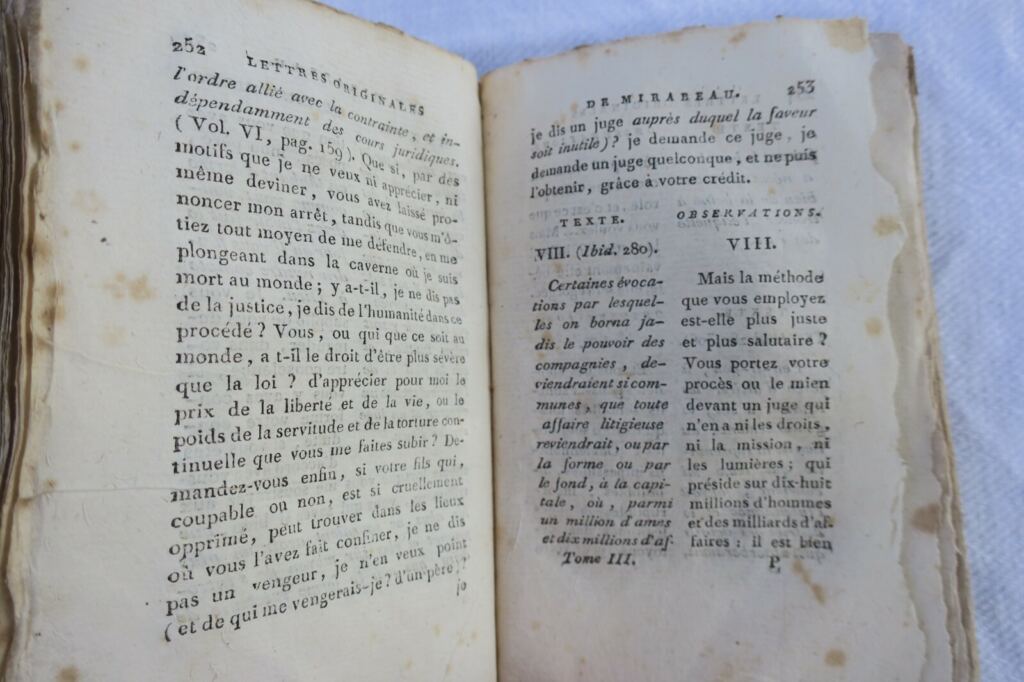 252
LETTRES ORIGINALES
l'ordre allié avec la contrainte, et in-
dépendamment des cours juridiques.
( Vol. VI, pag. 159). Que si, par des
motifs que je ne veux ni apprécier, ni
même deviner, vous avez laissé pro-
noncer mon arrêt, tandis que vous m'ô-
tiez tout moyen de me défendre, en me
plongeant dans la caverne où je suis
mort au monde ; y a-t-il, je ne dis pas
de la justice, je dis de l'humanité dans ce
procédé ? Vous, ou qui que ce soit au
monde, a t-il le droit d'être plus sévère
que la loi ? d'apprécier pour moi le
prix de la liberté et de la vie, ou le
poids de la servitude et de la torture con-
tinuelle que vous me faites subir ? De-
mandez-vous enfin, si votre fils qui,
coupable ou non, est si cruellement
opprimé, peut trouver dans les lieux
où vous l'avez fait confiner, je ne dis
pas un vengeur, je n'en veux point
( et de qui me vengerais-je ? d'un père) ?
je
DE MIRABEAU. 253
je dis un juge auprès duquel la faveur
soit inutile) ? je demande ce juge, je
demande un juge quelconque, et ne puis
l'obtenir, grâce à votre crédit.
TEXTE.
VIII. (Ibid. 280).
Certaines évoca-
tions par lesquel-
les on borna ja-
dis le pouvoir des
compagnies, de-
viendraient si com-
munes, que toute
affaire litigieuse
reviendrait, ou par
la forme ou par
le fond, à la capi-
tale, où, parmi
un million d'ames
et dix millions d'af-
OBSERVATIONS.
VIII.
Mais la méthode
que vous employez
est-elle plus juste
et plus salutaire ?
Vous portez votre
procès ou le mien
devant un juge qui
n'en a ni les droits,
ni la mission, ni
les lumières ; qui
préside sur dix-huit
millions d'hommes
et des milliards d'af-
faires : il est bien
Tome III. P